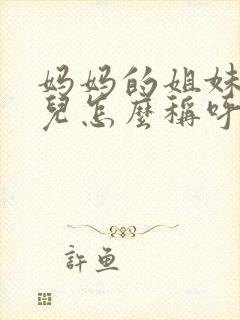 妈妈的姐妹
兒怎麼稱呼
許魚